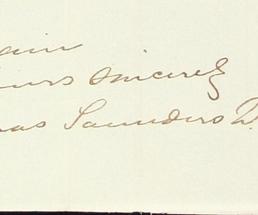 ain
urs sincerely
as Saunders D.